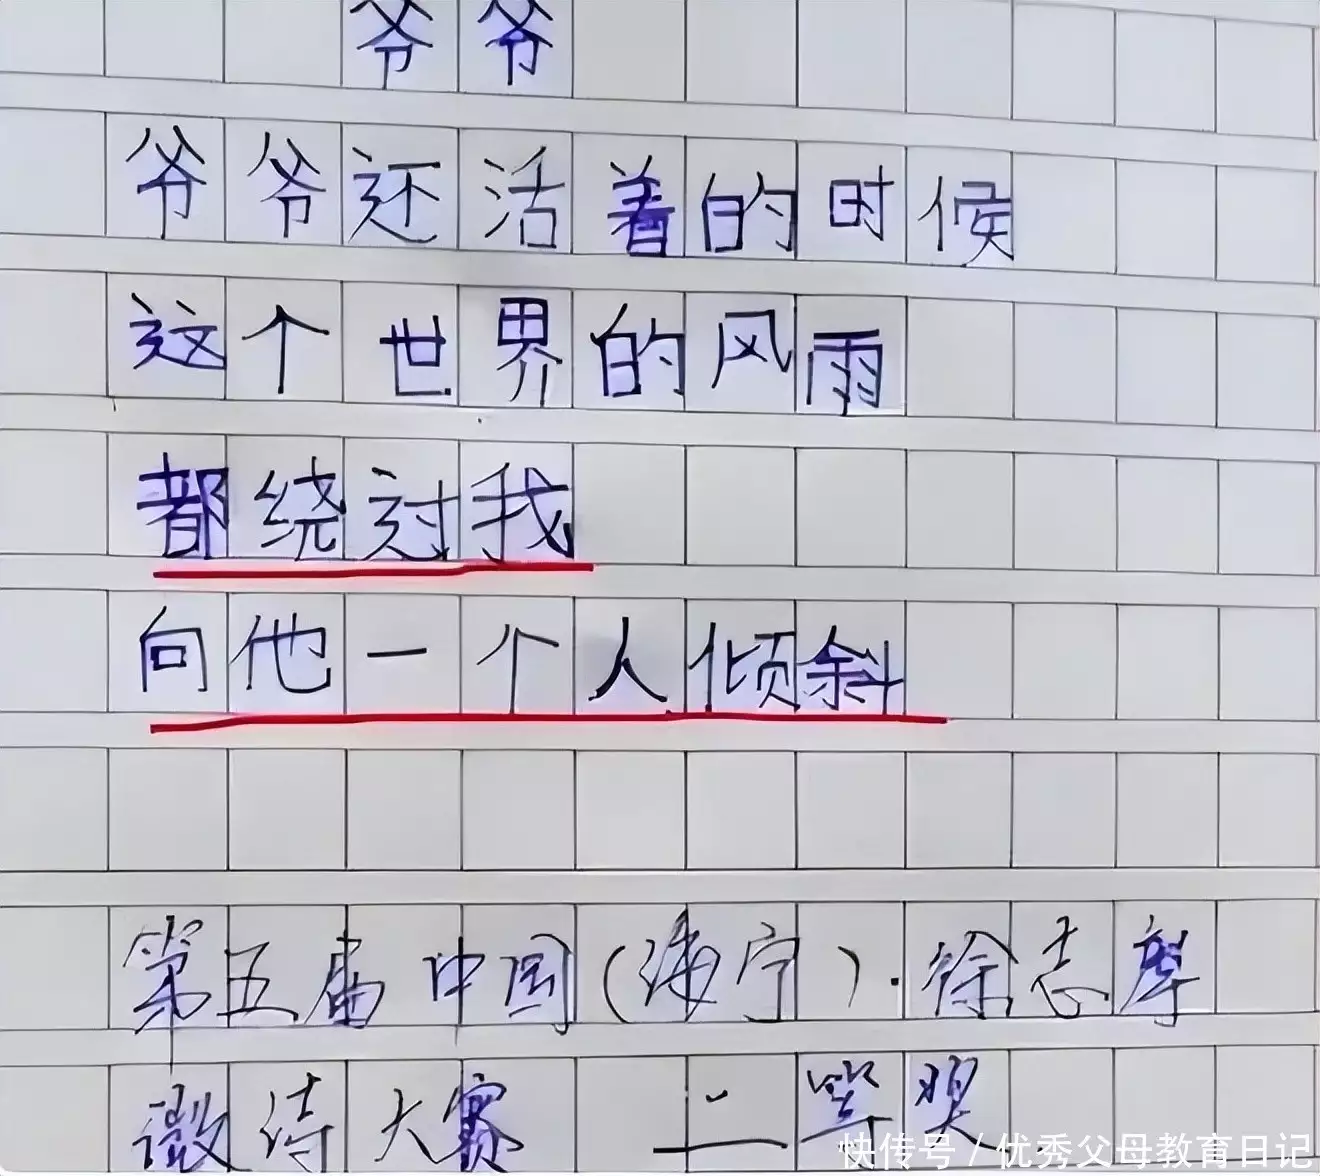 爷爷
爷爷还活着的时候
这个世界的风雨
都绕过我
向他一个人倾斜
第五届中国(海宁)·徐志摩
微诗大赛 二等奖
快传号/优秀父母教育日记